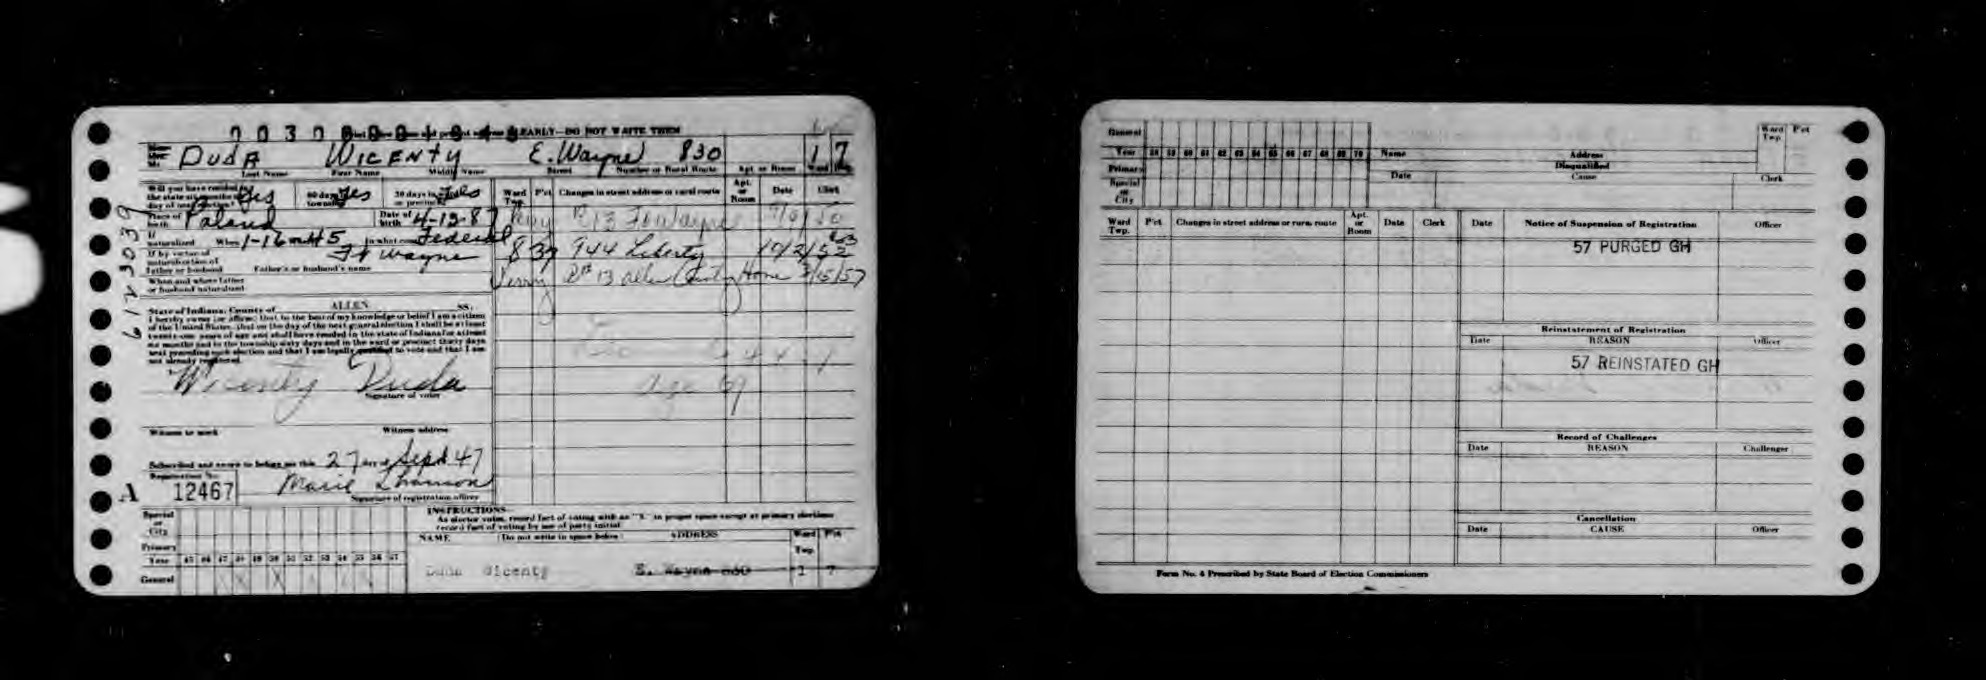 CLEARLY—DO NOT WRITE THEM
DUDA WICENTY E. Wayne 830 1 7
Last Name First Name Middle Name Street Number or Rural Route Apt. or Room Ward Pct
Will you have resided in the state six months on day of next election? Yes 60 days in township Yes 30 days in or precinct Yes
Ward Twp. P'ct. Changes in street address or rural route Apt. or Room Date Clerk
Place of birth Poland Date of birth 4-12-87
Perry R 13 Ft Wayne
If naturalized When 1-16-45 In what court Federal
8 39 944 Liberty 10/2/52
If by virtue of naturalization of father or husband Father's or husband's name
Ft Wayne
Perry R# 13 Allen County Home 3/15/57
When and where father or husband naturalized
612 3039
State of Indiana, County of ALLEN SS:
I hereby swear (or affirm) that to the best of my knowledge or belief I am a citizen
of the United States, that on the day of the next general election I shall be at least
twenty-one years of age and shall have resided in the state of Indiana for at least
six months and in the township sixty days and in the ward or precinct thirty days
next preceding such election and that I am legally qualified to vote and that I am
not already registered.
Wicenty Duda
Signature of voter
age 69
Witness to mark Witness address
Subscribed and sworn to before me this 27 day of Sept 47
Registration No.
A 12467 Marie
Signature of registration officer
INSTRUCTIONS
As elector votes, record fact of voting with an "X" in proper space except at primary elections
record fact of voting by use of party initial.
Special or City
Primary
Year 45 46 47 48 49 50 51 52 53 54 55 56 57
General
NAME (Do not write in space below) ADDRESS Ward Twp. P'ct
Duda Wicenty E. Wayne 830 1 7
General
Year 58 59 60 61 62 63 64 65 66 67 68 69 70
Primary
Special or City
Name Address Ward Twp. Pct
Disqualified
Date Cause Clerk
Ward Twp. P'ct. Changes in street address or rural route Apt. or Room Date Clerk Date Notice of Suspension of Registration Officer
57 PURGED GH
Reinstatement of Registration
Date REASON Officer
57 REINSTATED GH
Record of Challenges
Date REASON Challenger
Cancellation
Date CAUSE Officer
Form No. 4 Prescribed by State Board of Election Commissioners